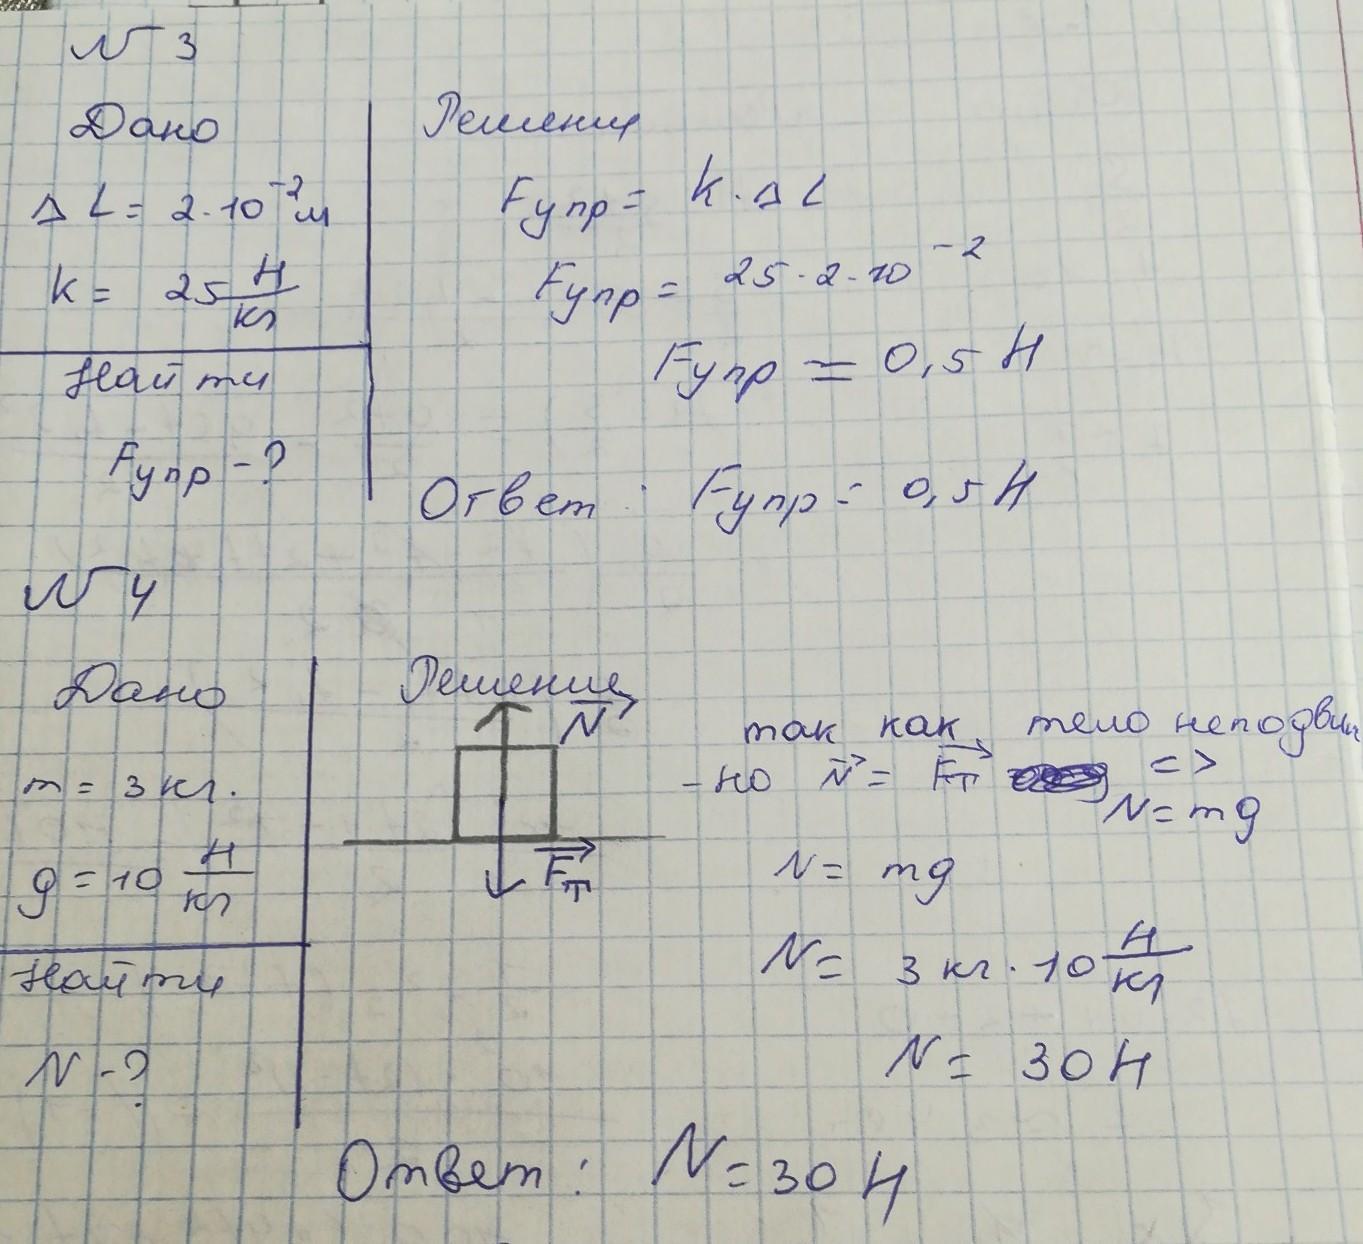 N 3
Дано
ΔL = 2·10⁻²м
k = 25 Н/кг
Найти
Fупр -?
Решение
Fупр = k·ΔL
Fупр = 25·2·10⁻²
Fупр = 0,5 Н
Ответ: Fупр = 0,5 Н
N 4
Дано
m = 3 кг.
g = 10 Н/кг
Найти
N -?
Решение
N⃗
F⃗т
так как тело неподвиж
-но N⃗ = F⃗т <=>
N = mg
N = mg
N = 3 кг · 10 Н/кг
N = 30 Н
Ответ: N = 30 Н